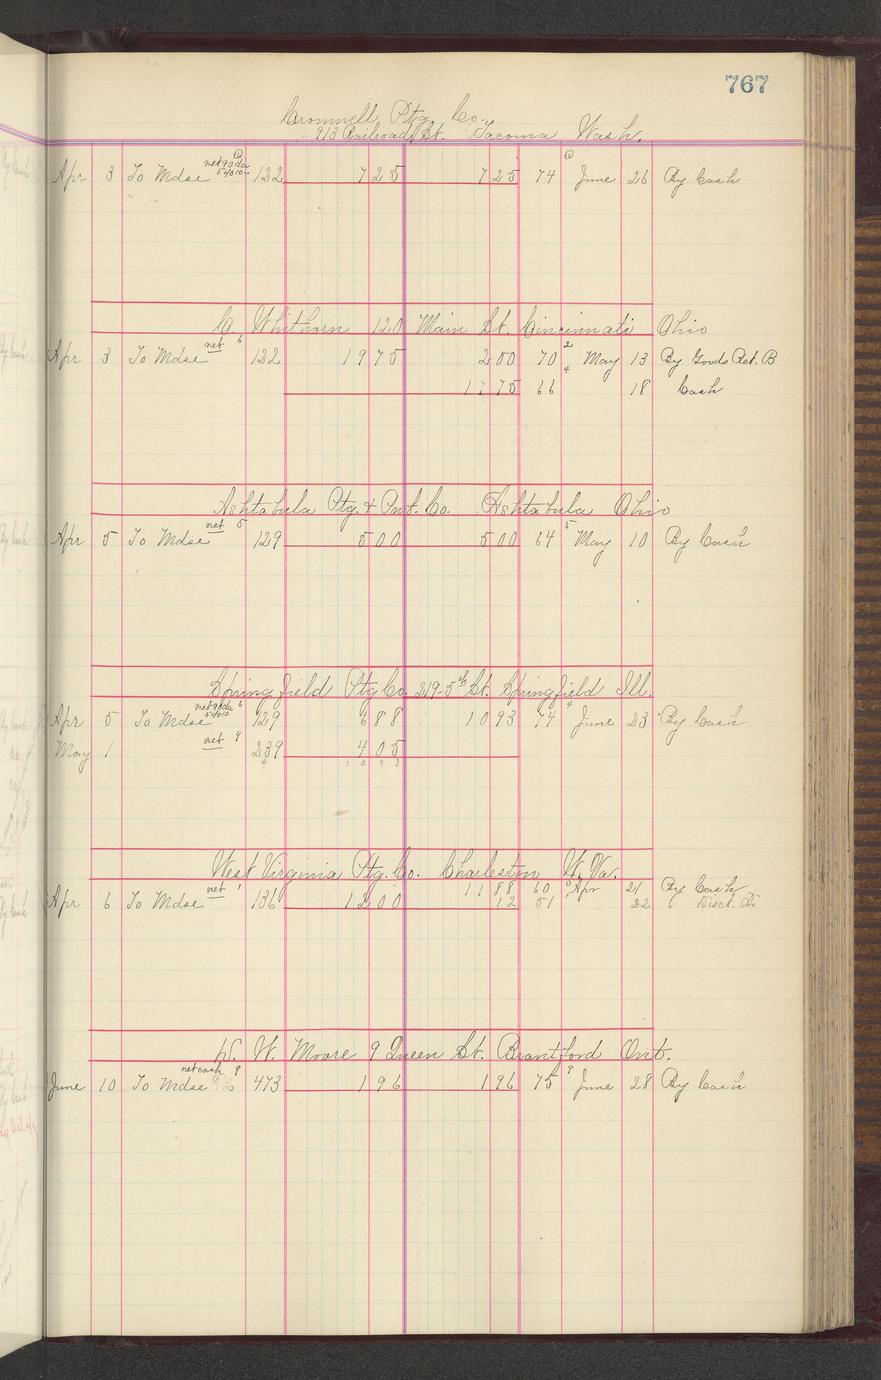 767
Cromwell Ptg. Co.
913 Railroad St. Tacoma Wash.
Apr 3 To Mdse net 90 da 5%10 122 7 25 7 25 74 June 26 By Cash
C. Whithorn 120 Main St. Cincinnati Ohio
Apr 3 To Mdse net 6 122 19 75 2 00 70 2 May 13 By Goods Ret. B
17 75 66 4 18 Cash
Ashtabula Ptg. & Pnt. Co. Ashtabula Ohio
Apr 5 To Mdse net 5 129 5 00 5 00 64 5 May 10 By Cash
Springfield Ptg Co. 219-5th St. Springfield Ill.
Apr 5 To Mdse net 90 da 5%10 6 129 6 88 10 93 74 4 June 23 By Cash
May 1 net 9 239 4 05
10 93
West Virginia Ptg. Co. Charleston W. Va.
11 88 60 Apr 21 By Cash
Apr 6 To Mdse net 1 136 12 00 12 51 22 Disct.
W. W. Moore 9 Queen St. Brantford Ont.
June 10 To Mdse net cash 9 473 1 96 1 96 75 9 June 28 By Cash